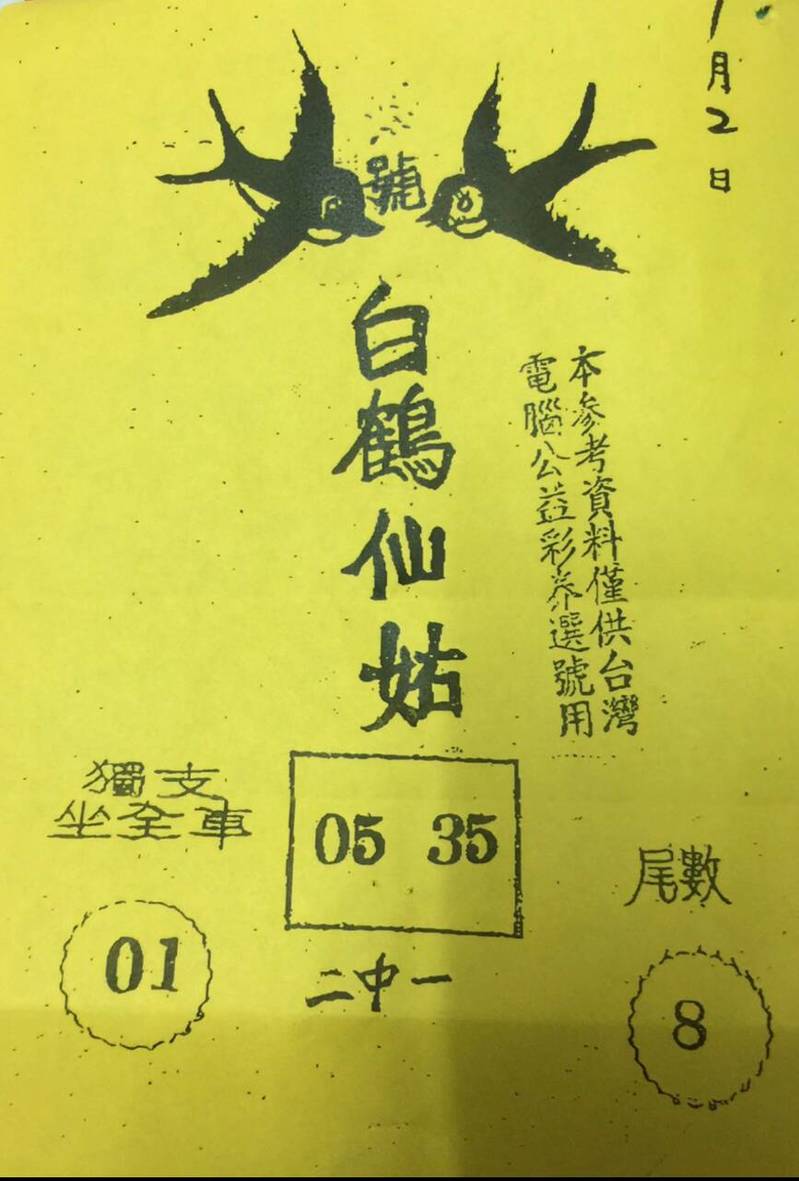 1月2日
號
白鶴仙姑
本參考資料僅供台灣
電腦公益彩券選號用
獨支
坐全車
01
05 35
二中一
尾數
8